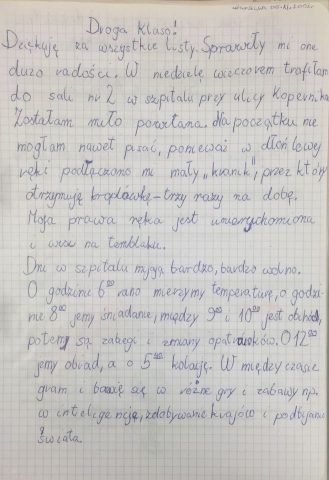 Droga Klaso!
Dziękuję za wszystkie listy. Sprawiły mi one
dużo radości. W niedzielę wieczorem trafiłam
do sali nr 2 w szpitalu przy ulicy Kopernika.
Zostałam miło powitana. Na początku nie
mogłam nawet pisać, ponieważ w dłoń lewej
ręki podłączono mi mały „kranik”, przez który
otrzymuję kroplówkę - trzy razy na dobę.
Moja prawa ręka jest unieruchomiona
i wisi na temblaku.
Dni w szpitalu mijają bardzo, bardzo wolno.
O godzinie 6⁰⁰ rano mierzymy temperaturę, o godzi-
nie 8⁰⁰ jemy śniadanie, między 9⁰⁰ i 10⁰⁰ jest obchód,
potem są zabiegi i zmiany opatrunków. O 12⁰⁰
jemy obiad, a o kolację. W między czasie
gram i bawię się w różne gry i zabawy np.
w inteligencję, zdobywanie krajów i podbijanie
świata.